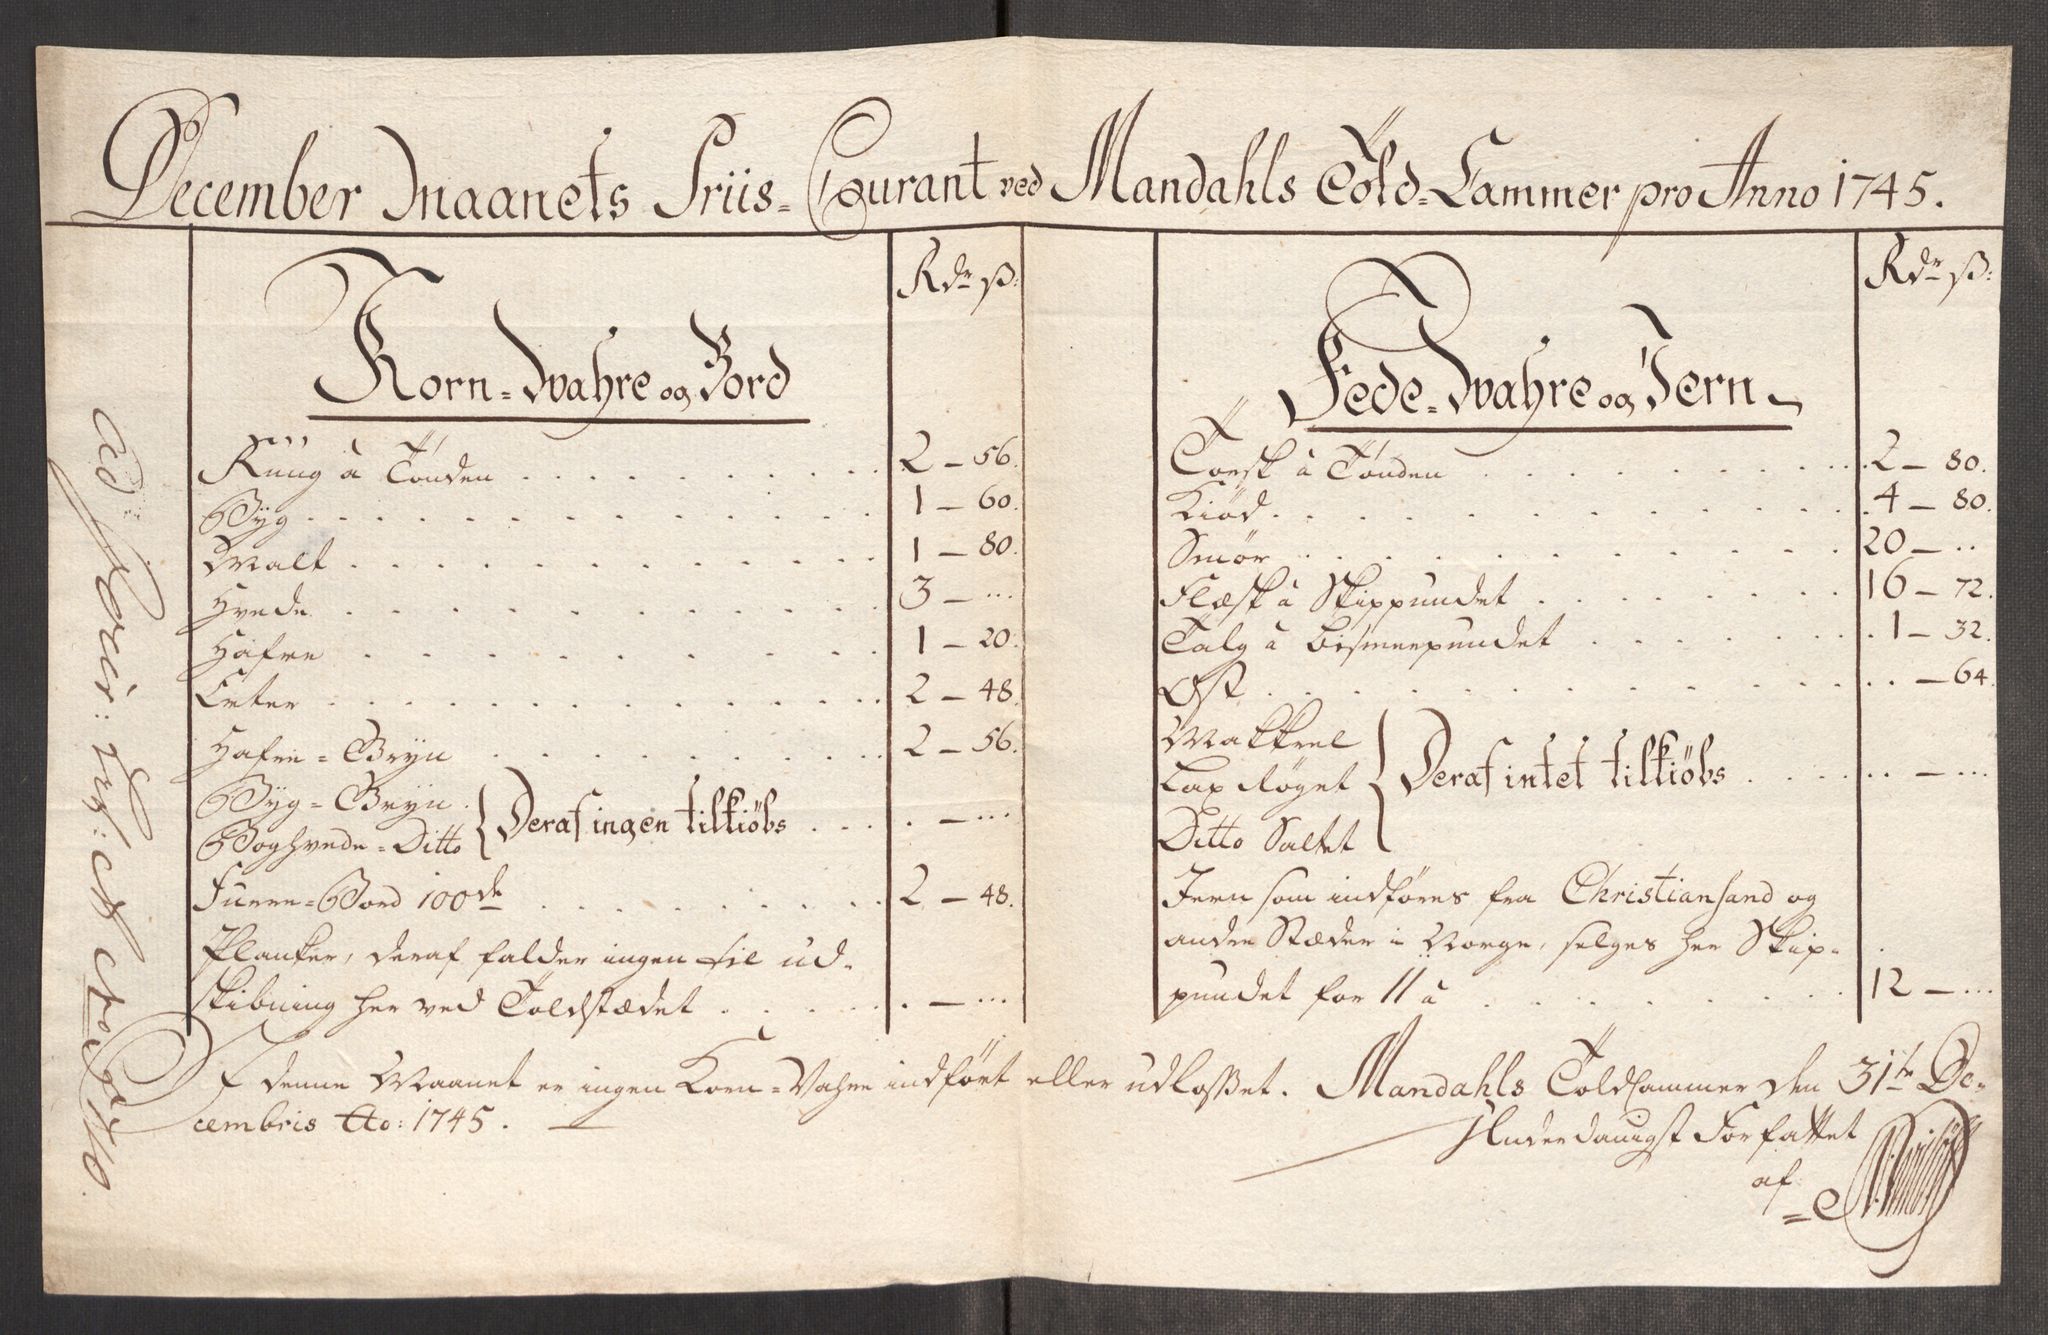 December Maanets Priis-Courant ved Mandahls Told-Cammer pro Anno 1745.
Rdr ß:
Korn-Wahre og Bord
Rüüg à Tønden . . . 2 – 56.
Byg . . . 1 – 60.
Malt . . . 1 – 80.
Hvede . . . 3 – ...
Hafre . . . 1 – 20.
Erter . . . 2 – 48.
Hafre-Gryn . . . 2 – 56.
Byg-Gryn.
Boghvede-Ditto } Deraf ingen tilkiøbs . . . . – ...
Furre-Bord 100de . . . 2 – 48.
Planker, deraf falder ingen til ud-
skibning her ved Toldstædet . . . . – ...
Rdr ß:
Fede-Wahre og Jern
Torsk à Tønden . . . 2 – 80.
Kiød . . . 4 – 80.
Smør . . . 20 – ..
Flæsk à Skippundet . . . 16 – 72.
Talg à Bismerpundet . . . 1 – 32.
Ost . . . – 64.
Makkrel
Lax Røget } Deraf intet tilkiøbs . . . – ...
Ditto Saltet
Jern som indføres fra Christiansand og
andre Stæder i Norge, selges her Skip-
pundet for 11 à . . . 12 – ...
I denne Maanet er ingen Korn-Vahre indført eller udlosset. Mandahls Toldcammer den 31te De-
cembris Ao: 1745.
Underdanigst Forfattet
af